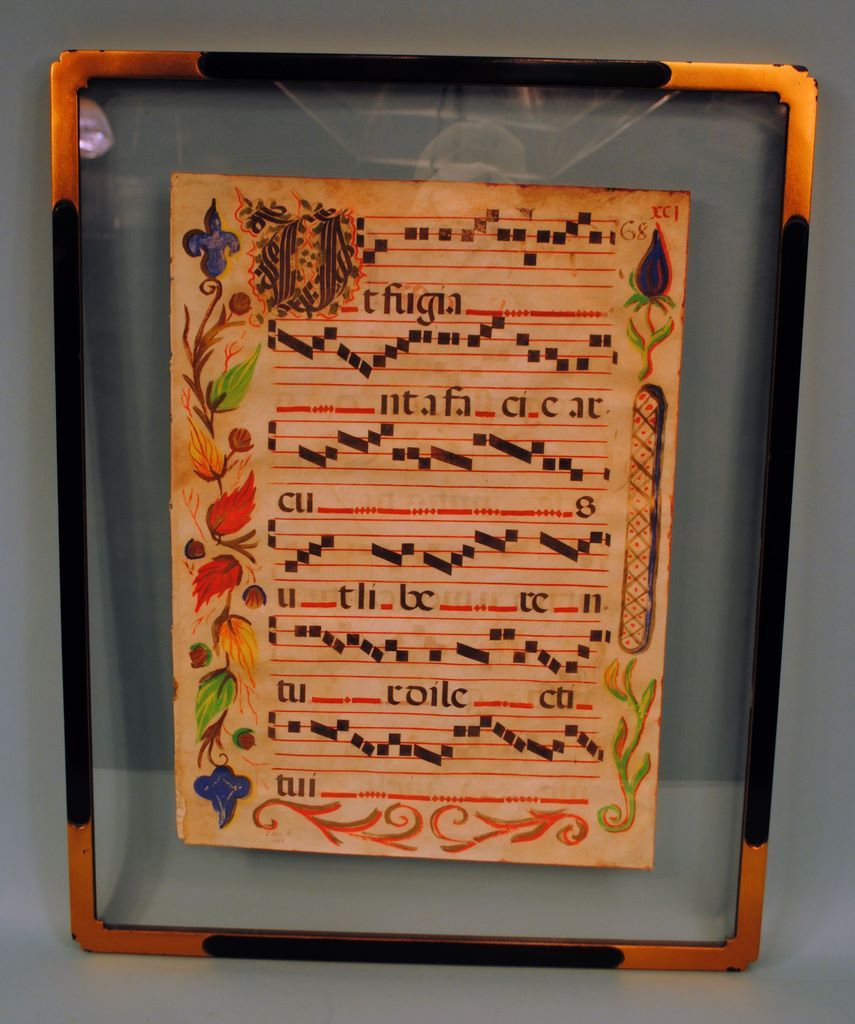 xcj
68
Ut fugia
nt a fa ci e ar
cu s
u t li be re n
tu r dile cti
tui